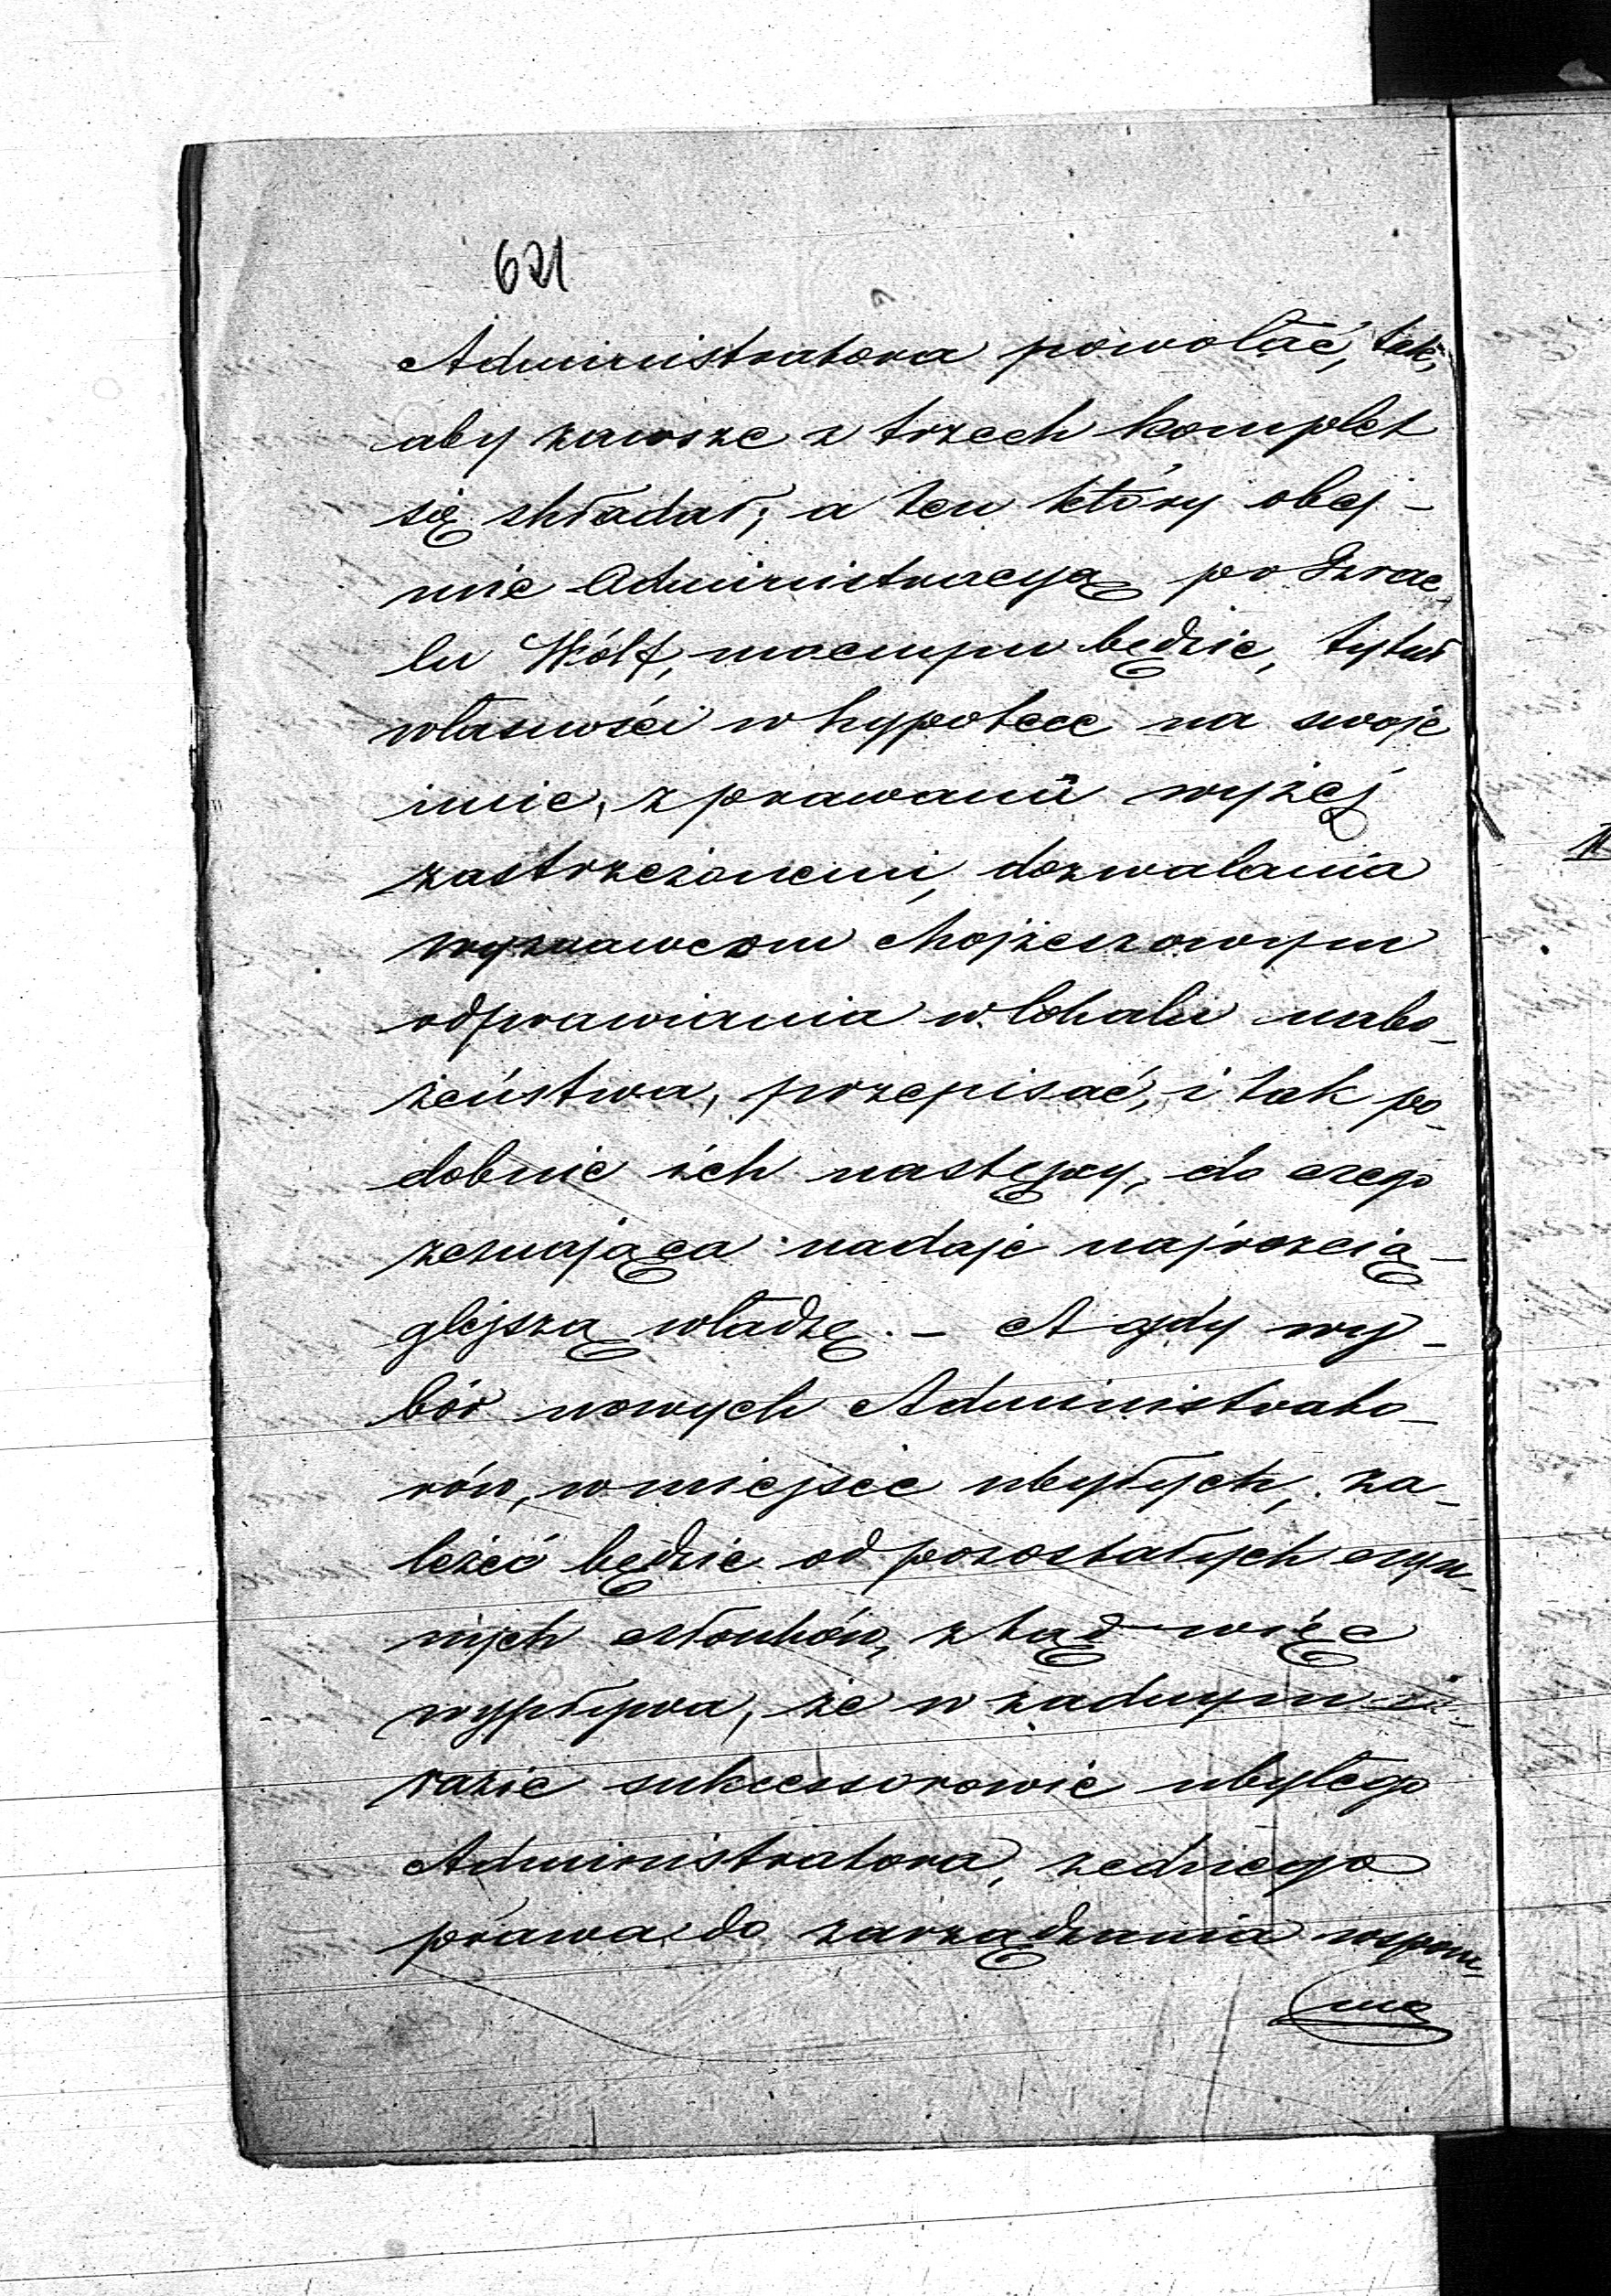 621
Administratora powołać, tak,
aby zawsze z trzech komplet
się składał; a ten który obej-
mie Administracyą po Izrae-
lu Wólf, mocnym będzie, tytuł
własności w hypotece na swoje
imie, z prawami wyżej
zastrzeżonemi, dozwalania
wyznawcom Mojżeszowym
odprawiania w lokalu nabo-
żeństwa, przepisać, i tak po-
dobnie ich następcy, do czego
zeznająca nadaje najrozcią-
glejszą władzę. - A gdy wy-
bór nowych Administrato-
rów, w miejsce ubyłych, za-
leżeć będzie od pozostałych czyn-
nych członków, ztąd więc
wypływa, że w żadnym
razie sukcessorowie ubyłego
Administratora, żednego
prawa do zarządzania wspom-